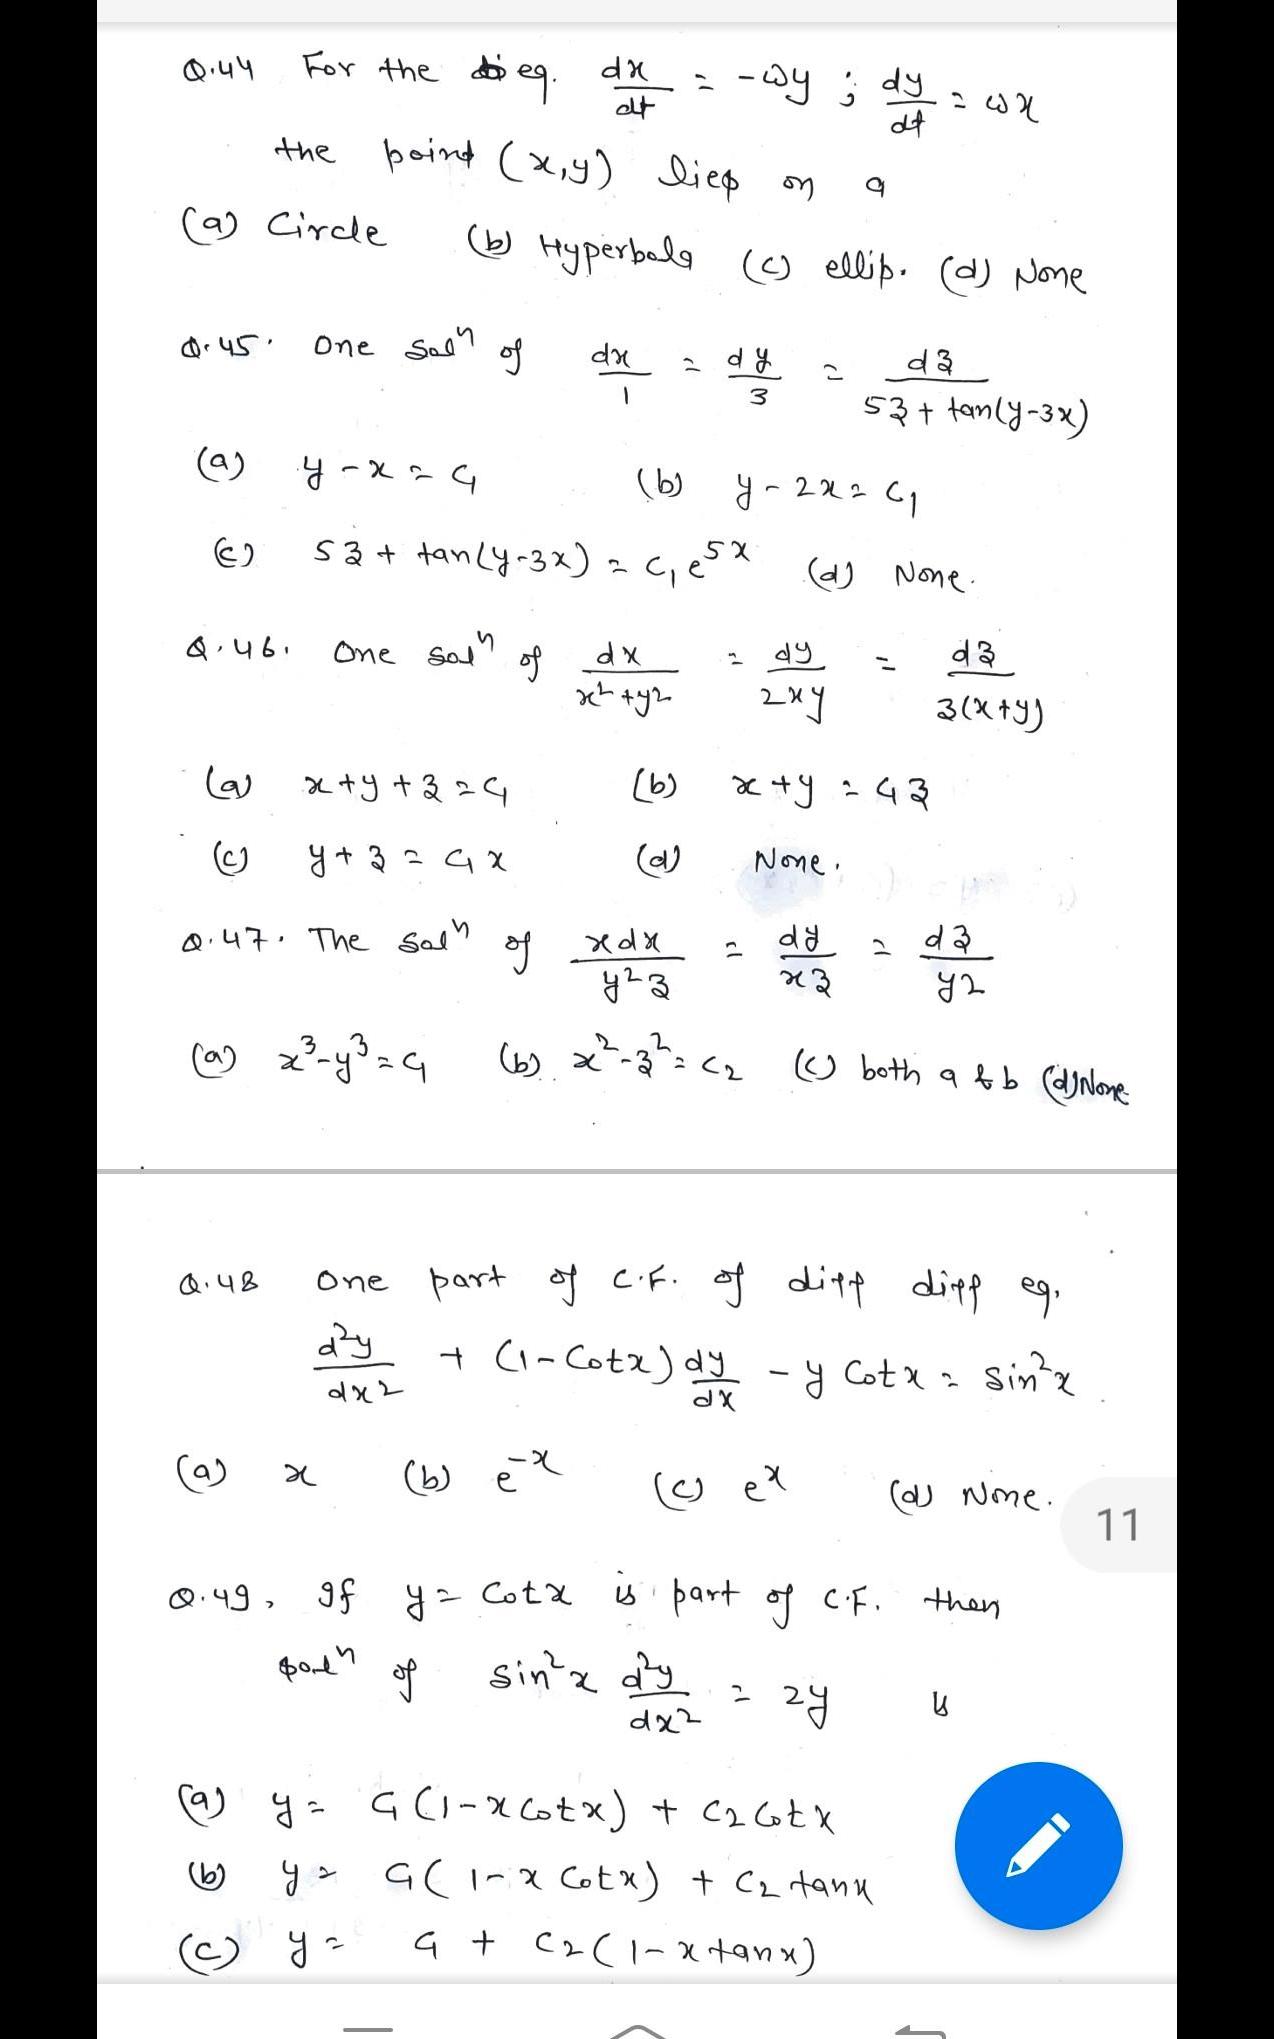 Q.44 For the eq. dx/dt = -ωy ; dy/dt = ωx
the point (x,y) lies on a
(a) Circle (b) Hyperbola (c) ellip. (d) None
Q.45. One solⁿ of dx/1 = dy/3 = dz/5z + tan(y-3x)
(a) y - x = c₁ (b) y - 2x = c₁
(c) 5z + tan(y-3x) = c₁ e^5x (d) None.
Q.46. One solⁿ of dx/x²+y² = dy/2xy = dz/z(x+y)
(a) x+y+z = c₁ (b) x+y = c₁z
(c) y+z = c₁x (d) None.
Q.47. The solⁿ of xdx/y²z = dy/xz = dz/y²
(a) x³-y³ = c₁ (b) x²-z² = c₂ (c) both a & b (d) None
Q.48 One part of C.F. of diff diff eq.
d²y/dx² + (1-Cotx) dy/dx - y Cotx = sin²x
(a) x (b) e^-x (c) e^x (d) None.
11
Q.49, If y = Cotx is part of C.F. then
solⁿ of sin²x d²y/dx² = 2y is
(a) y = c₁(1-xCotx) + c₂Cotx
(b) y = c₁(1-xCotx) + c₂tanx
(c) y = c₁ + c₂(1-xtanx)